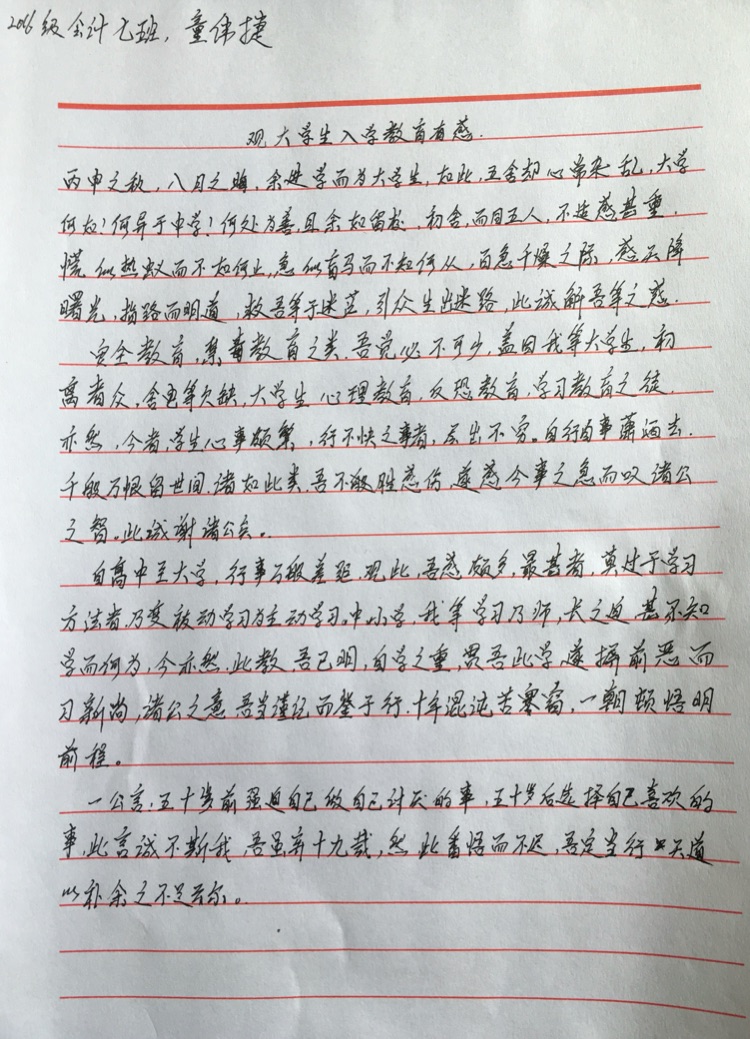 2016级会计七班,童伟捷
观大学生入学教育有感.
丙申之秋,八月之晦,余进学而为大学生,如此,五舍却心常杂乱,大学
何如?何异于中学?何处为善,且余如留校,初舍,而同五人,不造惑甚重,
慌似热蚁而不如何止,急似盲马而不知何从,百急千燥之际,感云降
曙光,指路而明道,救吾等于迷茫,引众生出迷路,此诚解吾等之惑.
安全教育,禁毒教育之类,吾觉必不可少,盖因我等大学生,初
离者众,舍电等欠缺,大学生心理教育,反恐教育,学习教育之徒,
亦然,今者,学生心事颇繁,行不快之事者,层出不穷。自行自事萧洒去,
千般万恨留世间,诸如此类,吾不敢胜悲伤,遂感今事之急而叹诸公
之智。此诚谢诸公矣。
自高中至大学,行事万般差距,观此,吾感颇多,最甚者,莫过于学习
方法者,乃变被动学习为主动学习。中小学,我等学习乃师,长之迫,甚不知
学而何为,今亦然,此教吾已明,自学之重,畏吾此学遂摒前恶而
习新尚,诸公之意,吾当谨记而鉴于行,十年混沌苦寒窗,一朝顿悟明
前程。
一公言,五十岁前强迫自己做自己讨厌的事,五十岁后选择自己喜欢的
事,此言诚不斯我,吾虽弃十九载,然此番悟而不迟,吾定当行天道
以补余之不足云尔。